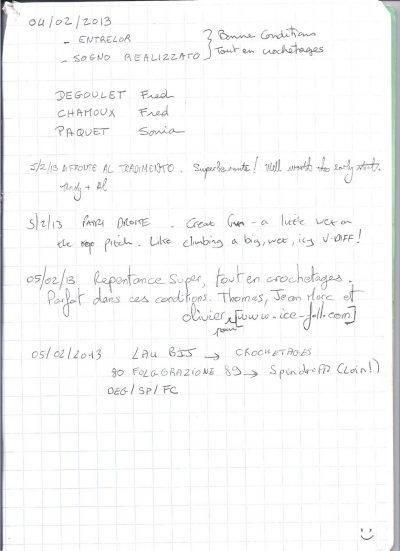 04/02/2013
- ENTRELOR } Bonne Conditions
- SOGNO REALIZZATO } Tout en crochetages
DEGOULET Fred
CHAMOUX Fred
PAQUET Sonia
5/2/13 AFRONTE AL TRADIMENTO. Superbe route! Well worth the early start.
Andy + Al
5/2/13 PATRI DROITE. Great fun - a little wet on
the top pitch. Like climbing a big, wet, icy V-DIFF!
05/02/13 Repentance Super, tout en crochetages.
Parfait dans ces conditions. Thomas, Jean Marc et
olivier pour [www.ice-fall.com]
05/02/2013 LAU BIJ → CROCHETAGES
80 FOLGORAZIONE 89 → Spindrift (Loin!)
DEG/SP/FC